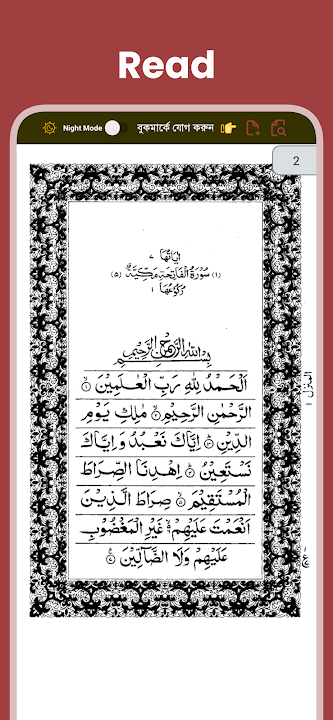 Read
Night Mode বুকমার্কে যোগ করুন
2
اٰيَاتُهَا ٧
(١) سُوْرَةُ الْفَاتِحَةِ مَكِّيَّةٌ (٥)
رُكُوْعُهَا ١
بِسْمِ اللّٰهِ الرَّحْمٰنِ الرَّحِيْمِ
اَلْحَمْدُ لِلّٰهِ رَبِّ الْعٰلَمِيْنَ ١
الرَّحْمٰنِ الرَّحِيْمِ ٢ مٰلِكِ يَوْمِ
الدِّيْنِ ٣ اِيَّاكَ نَعْبُدُ وَ اِيَّاكَ
نَسْتَعِيْنُ ٤ اِهْدِنَا الصِّرَاطَ
الْمُسْتَقِيْمَ ٥ صِرَاطَ الَّذِيْنَ
اَنْعَمْتَ عَلَيْهِمْ ٦ غَيْرِ الْمَغْضُوْبِ
عَلَيْهِمْ وَلَا الضَّآلِّيْنَ ٧
المنزل ١